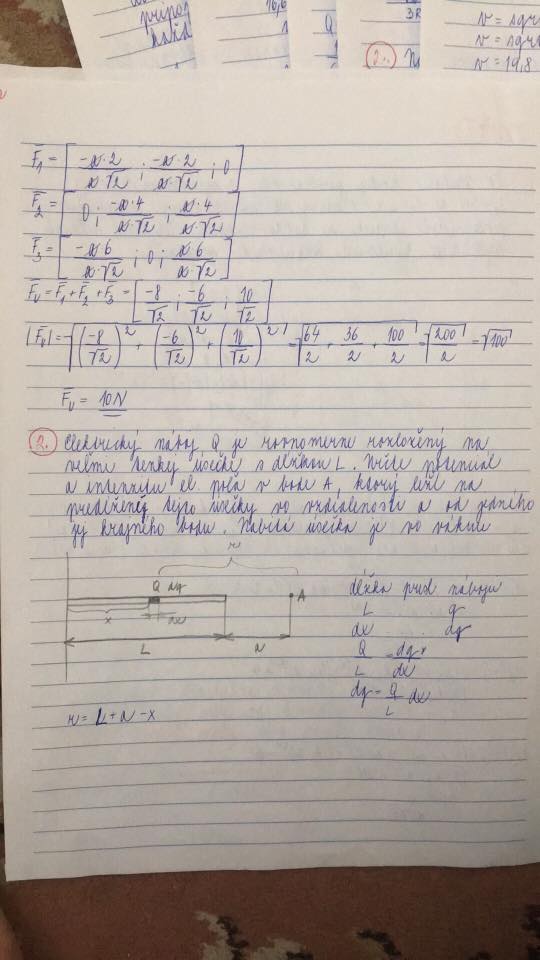 16,6
3R
Q
2.
v = sqr
v = sqrt
v = 19,8
F̄₁ = [ -a·2 / a·√2 ; -a·2 / a·√2 ; 0 ]
F̄₂ = [ 0 ; -a·4 / a·√2 ; a·4 / a·√2 ]
F̄₃ = [ -a·6 / a·√2 ; 0 ; a·6 / a·√2 ]
F̄ᵥ = F̄₁ + F̄₂ + F̄₃ = [ -8/√2 ; -6/√2 ; 10/√2 ]
|F̄ᵥ| = √( (-8/√2)² + (-6/√2)² + (10/√2)² ) = √( 64/2 + 36/2 + 100/2 ) = √(200/2) = √100
F̄ᵥ = 10N
2. Elektrický náboj Q je rovnomerne rozložený na
veľmi tenkej úsečke s dĺžkou L. Určte potenciál
a intenzitu el. poľa v bode A, ktorý leží na
predĺžení tejto úsečky vo vzdialenosti a od jedného
jej krajného bodu. Nabitá úsečka je vo vákuu
r
Q dq
A
x
dx
L
a
dĺžka pred náboju
L .. q
dx .... dq
Q/L = dq/dx
dq = Q/L dx
r = L + a - x